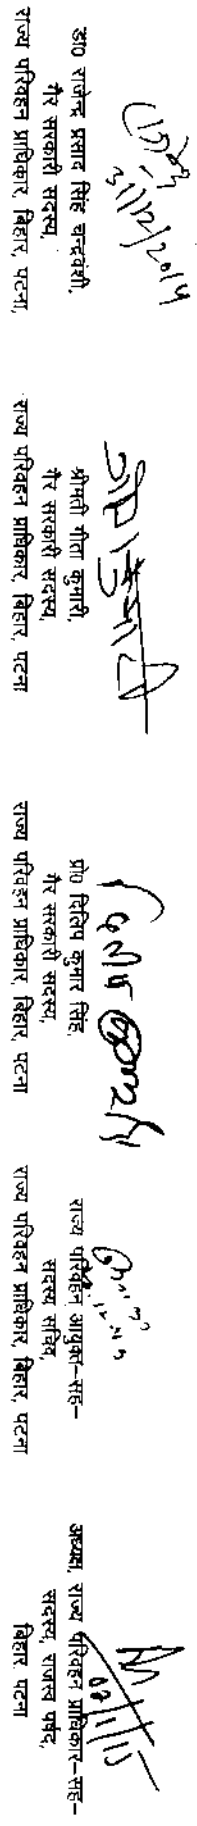 31/12/2014
डा० राजेन्द्र प्रसाद सिंह चन्द्रवंशी,
गैर सरकारी सदस्य,
राज्य परिवहन प्राधिकार, बिहार, पटना,
श्रीमती गीता कुमारी,
गैर सरकारी सदस्य,
राज्य परिवहन प्राधिकार, बिहार, पटना
प्रो० दिलिप कुमार सिंह,
गैर सरकारी सदस्य,
राज्य परिवहन प्राधिकार, बिहार, पटना
राज्य परिवहन आयुक्त–सह–
सदस्य सचिव,
राज्य परिवहन प्राधिकार, बिहार, पटना
अध्यक्ष, राज्य परिवहन प्राधिकार–सह–
सदस्य, राजस्व पर्षद,
बिहार, पटना